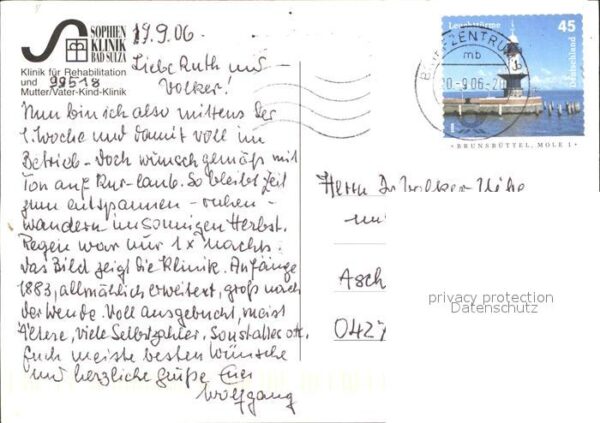 SOPHIEN
KLINIK
BAD SULZA
Klinik für Rehabilitation
und 99518
Mutter/Vater-Kind-Klinik
19.9.06.
Liebe Ruth und
Volker!
Nun bin ich also mittens der
1. Woche und damit voll im
Betrieb. Doch wunschgemäß mit
Ton auf Kur-laub. So bleibt Zeit
zum entspannen - ruhen -
wandern im sonnigen Herbst.
Regen war nur 1x nachts.
Das Bild zeigt die Klinik. Anfänge
1883, allmählich erweitert, groß nach
der Wende. Voll ausgebucht, meist
Ältere, viele Selbstzahler. Sonst alles ok.
Euch meiste besten Wünsche
und herzliche Grüße Euer
Wolfgang
Leuchttürme
45
Deutschland
BRIEFZENTRUM
mb
20.-9.06-21
BRUNSBÜTTEL, MOLE 1
Herrn Dr Volker
und
Asch
042
privacy protection
Datenschutz